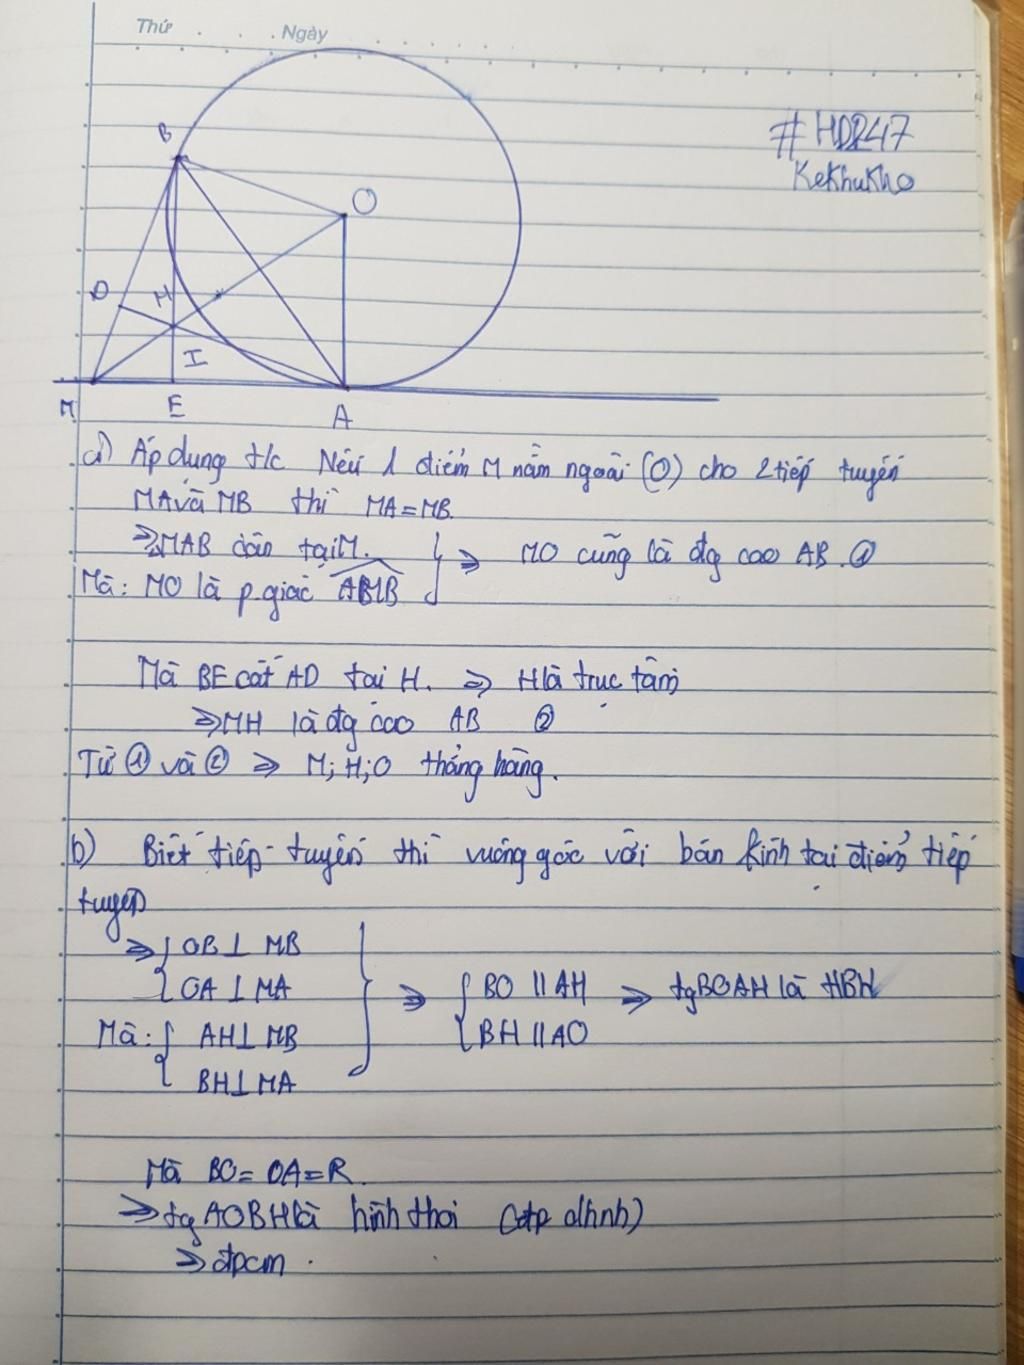 Thứ Ngày
#HDR247
KeKhuKho
B
O
D
H
I
M
E
A
a) Áp dụng t/c Nếu 1 điểm M nằm ngoài (O) cho 2 tiếp tuyến
MA và MB thì MA = MB.
⇒ △MAB cân tại M.
⇒ MO cũng là đg cao AB. ①
Mà: MO là p.giác AMB
Mà BE cắt AD tại H. ⇒ H là trực tâm
⇒ MH là đg cao AB ②
Từ ① và ② ⇒ M; H; O thẳng hàng.
b) Biết tiếp tuyến thì vuông góc với bán kính tại điểm tiếp
tuyến
⇒ { OB ⊥ MB
OA ⊥ MA
Mà: { AH ⊥ MB
BH ⊥ MA
⇒ { BO // AH
BH // AO
⇒ tg BOAH là HBH
Mà BO = OA = R.
⇒ tg AOBH là hình thoi
⇒ đpcm.